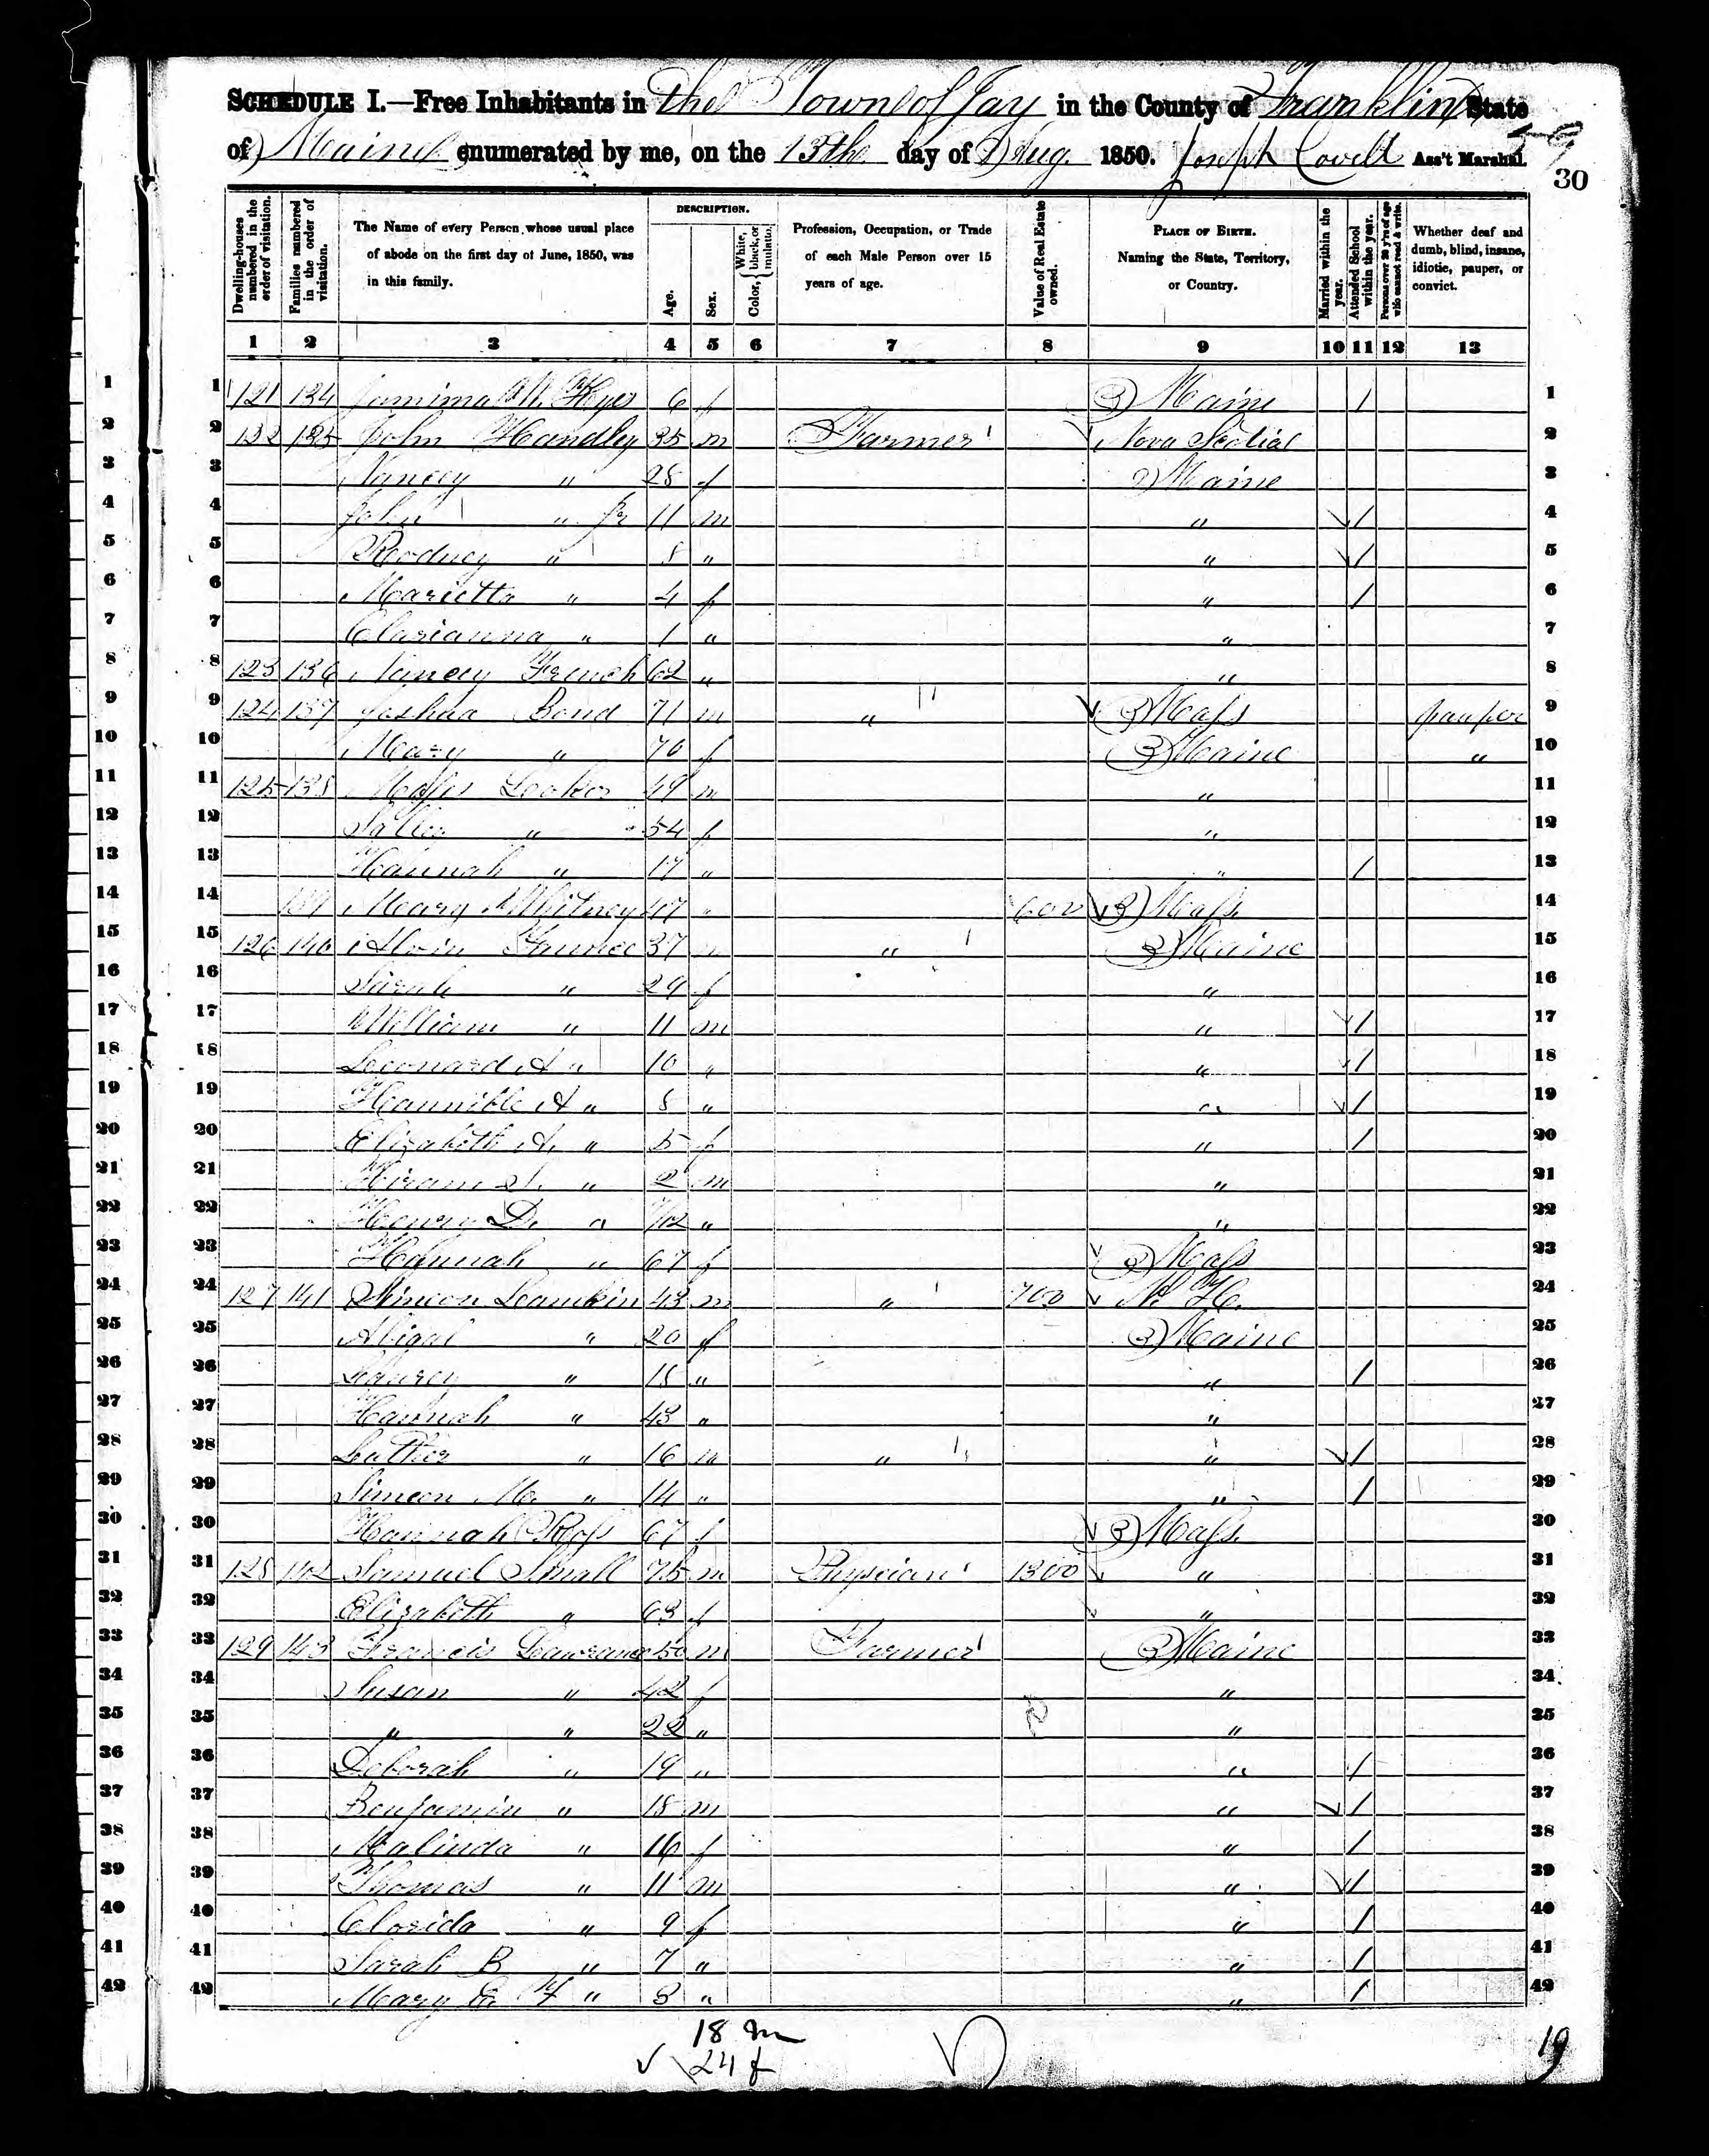 SCHEDULE I.—Free Inhabitants in the Town of Jay in the County of Franklin State
of Maine enumerated by me, on the 13th day of Aug. 1850. Joseph Covell Ass't Marshal.
30
Dwelling-houses numbered in the order of visitation.
Families numbered in the order of visitation.
The Name of every Person whose usual place of abode on the first day of June, 1850, was in this family.
DESCRIPTION.
Age.
Sex.
Color, White, black, or mulatto.
Profession, Occupation, or Trade of each Male Person over 15 years of age.
Value of Real Estate owned.
PLACE OF BIRTH. Naming the State, Territory, or Country.
Married within the year.
Attended School within the year.
Persons over 20 y'rs of age who cannot read & write.
Whether deaf and dumb, blind, insane, idiotic, pauper, or convict.
1 2 3 4 5 6 7 8 9 10 11 12 13
1 121 134 Jamima 6 f Maine 1 1
2 132 135 John Handley 35 m Farmer Nova Scotia 2
3 Nancy " 28 f Maine 3
4 John " Jr 11 m " 1 4
5 Rodney " 8 " " 1 5
6 Marietta " 4 f " 1 6
7 Clarianna " 1 " " 7
8 123 136 Nancy French 62 " " 8
9 124 137 Joshua Bond 71 m " Mass pauper 9
10 Mary " 70 f Maine " 10
11 125 138 Moses 49 m " 11
12 Salley " 54 f " 12
13 Hannah " 17 " " 1 13
14 139 Mary Whitney 47 " 600 Mass. 14
15 126 140 Alvin 37 m " Maine 15
16 Sarah " 29 f " 16
17 William " 11 m " 1 17
18 Leonard A " 10 " " 1 18
19 Hannible A " 8 " " 1 19
20 Elizabeth A. " 5 f " 1 20
21 Hiram S. " 2 m " 21
22 Henry D. " 7/12 " " 22
23 Hannah " 67 f Mass 23
24 127 141 Simeon Lamkin 43 m " 700 N. H. 24
25 Abigal " 20 f Maine 25
26 " 18 " " 1 26
27 Hannah " 43 " " 27
28 Luther " 16 m " " 1 28
29 Simeon M. " 14 " " 1 29
30 Hannah Ross 67 f Mass. 30
31 128 142 Samuel Small 75 m Physcian 1300 " 31
32 Elizabeth " 63 f " 32
33 129 143 Francis Lawrance 50 m Farmer Maine 33
34 Susan " 42 f " 34
35 " " 22 " " 35
36 Deborah " 19 " " 1 36
37 Benjamin " 18 m " 1 37
38 Malinda " 16 f " 1 38
39 Thomas " 11 m " 1 39
40 Clorida " 9 f " 1 40
41 Sarah B " 7 " " 1 41
42 Mary E. " 3 " " 1 42
18 m
24 f
19